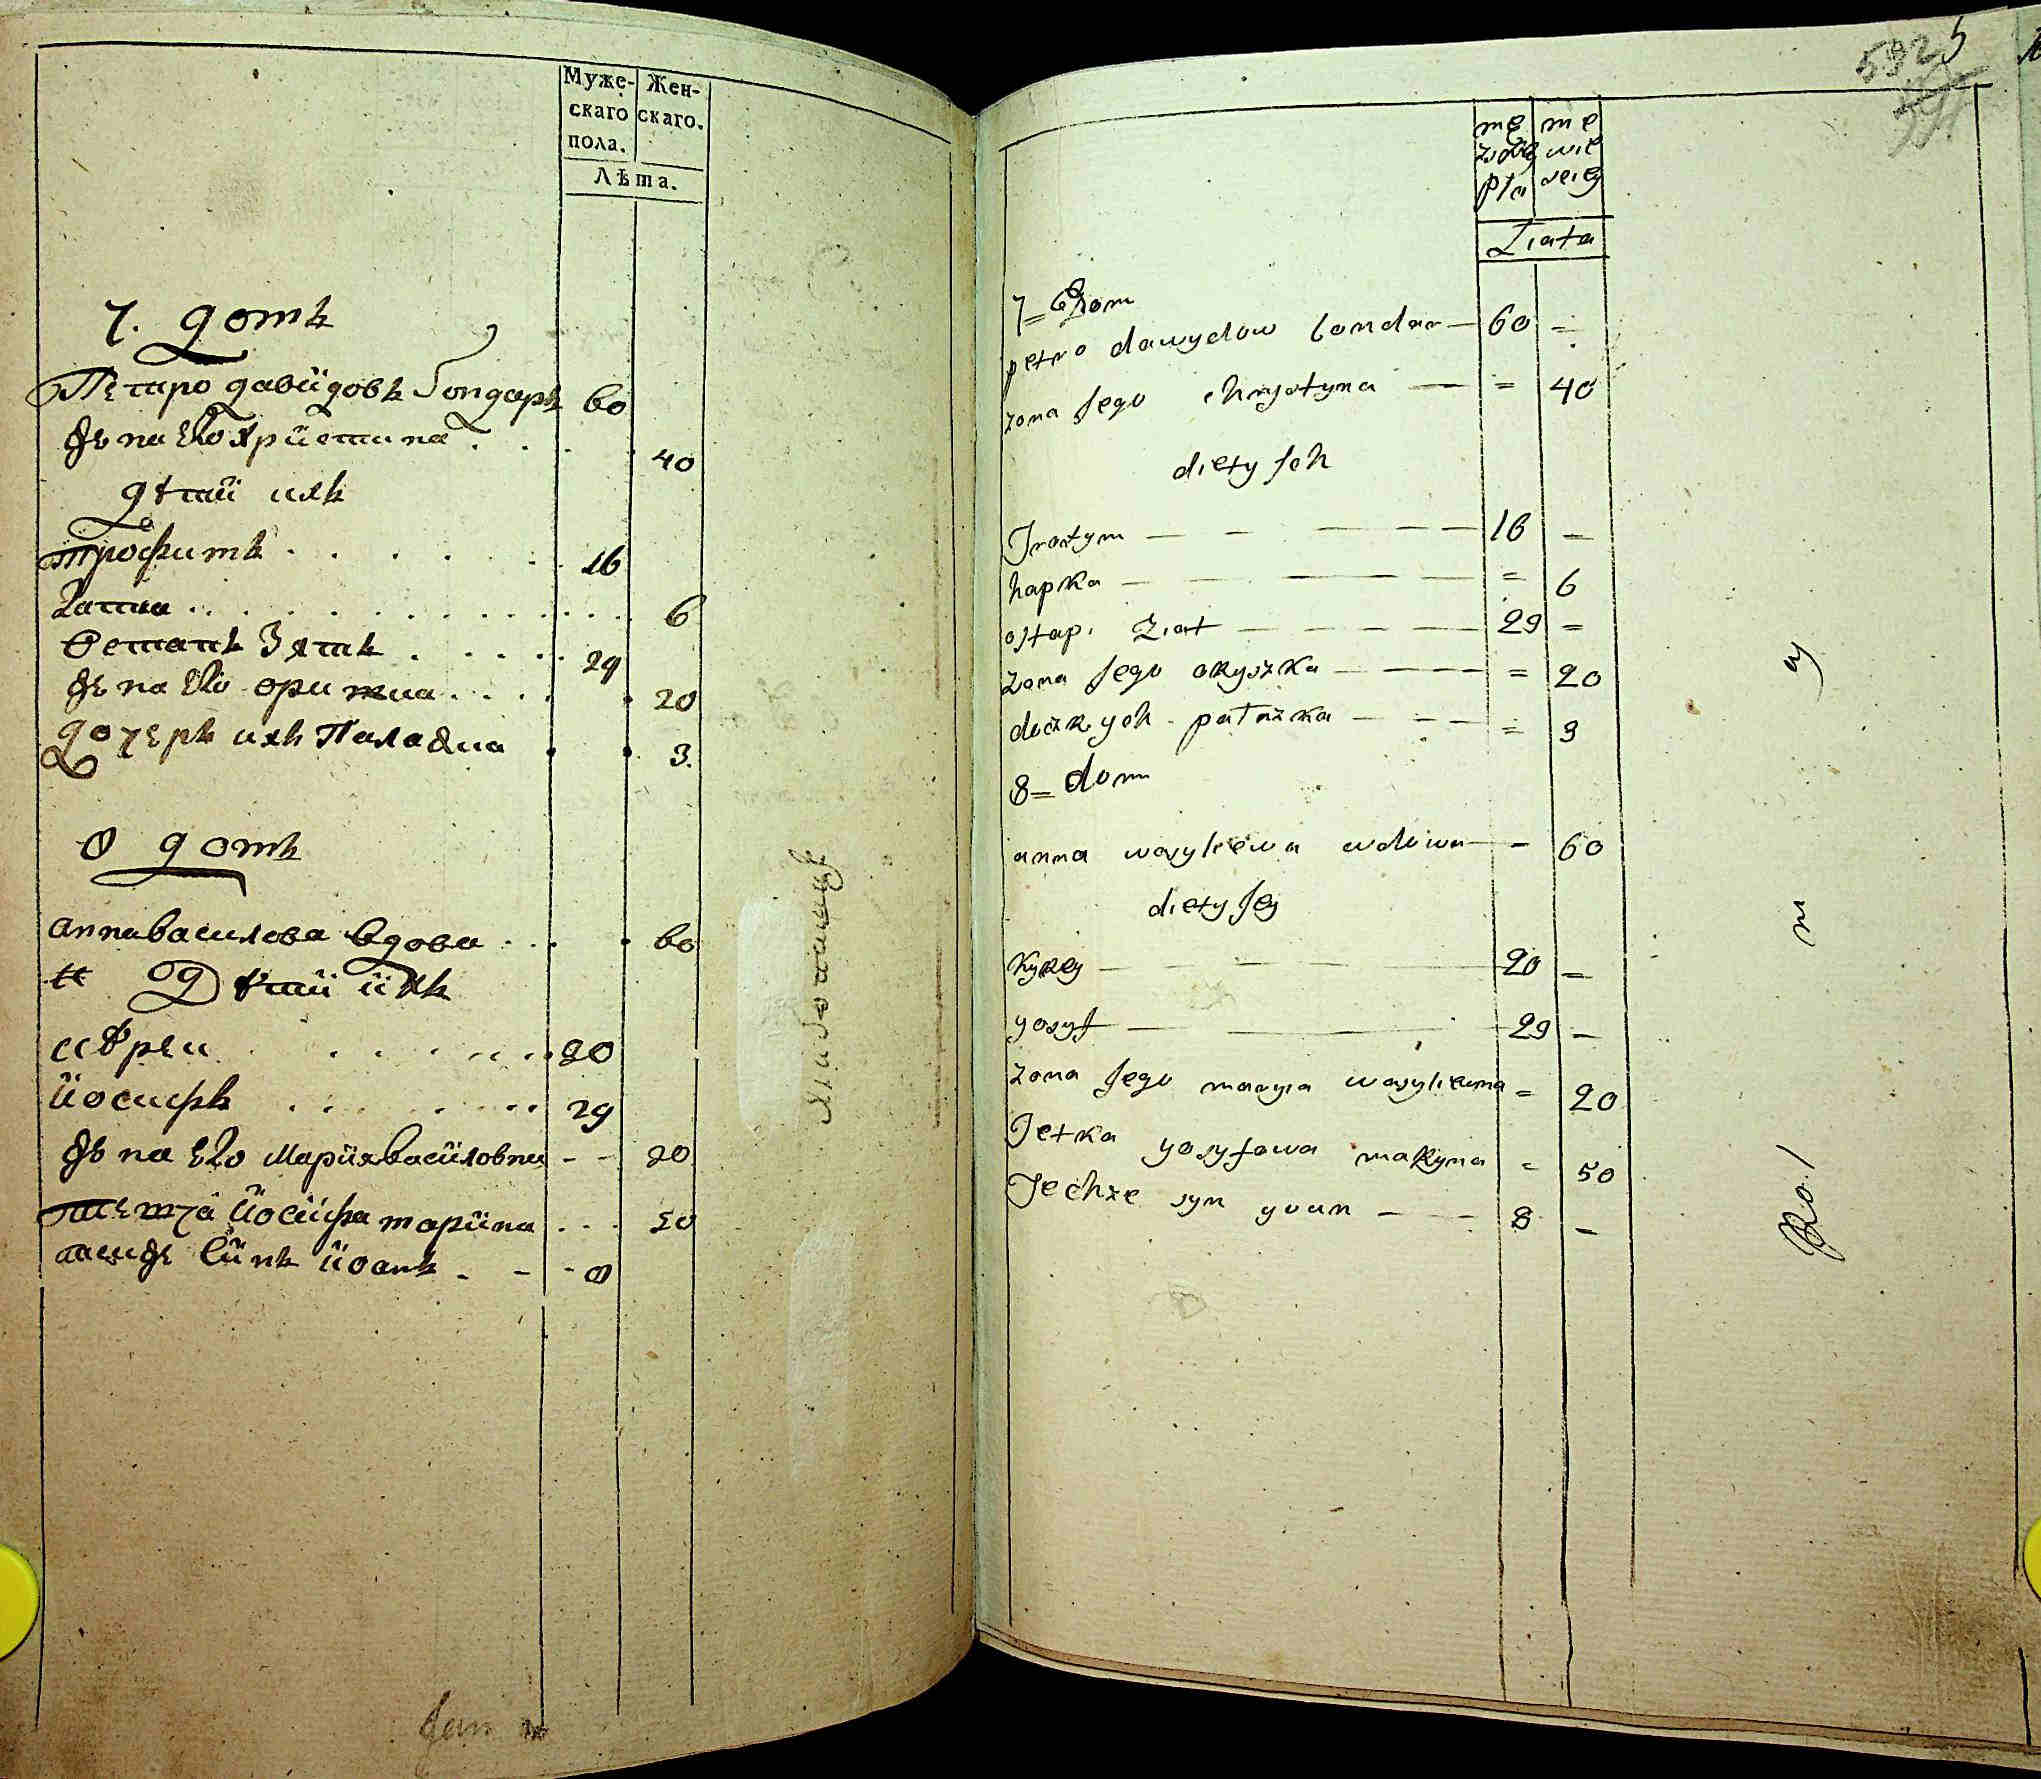 Муже-
скаго
пола.
Жен-
скаго.
Лѣта.
7. домъ
Петро давїдовъ бондаръ 60
жена его хрїстина . . . 40
дѣтий ихъ
трофимъ . . . . . 16
гапка . . . . . . . 6
Остапъ Зять . . . . . 29
жена его оришка . . . . 20
дочеръ ихъ Палажка . . 3.
8 домъ
анна василева вдова . . . 60
дѣтий їхъ
кѣреи . . . . . . 20
їосифъ . . . . . . 29
жена его Марїя васїловна - - 20
тетка їосїфа марїна . . . 50
їоанъ - - - 8
592 5
męzkiey płci
Liata
7 = dom
petro dawydow bondar — 60 =
zona Jego chrystyna — = 40
diety Jch
Trotym — — — — 16 —
hapka — — — — = 6
ostap. Ziat — — — — 29 =
zona Jego oryszka — — — = 20
patażka — — — = 3
8 = dom
anna wasylewa wdowa — - 60
diety Jey
Kyrey — — — — 20 —
yosyf — — — 29 —
zona Jego marya wasylewna = 20
Tetka yosyfowa maryna = 50
Jechze syn yuan — — 8 —